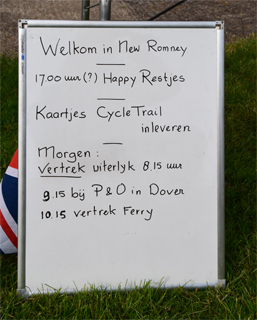 Welkom in New Romney
1700 uur (?) Happy Restjes
Kaartjes CycleTrail
inleveren
Morgen :
Vertrek uiterlyk 8.15 uur
9.15 bij P&O in Dover
10.15 vertrek Ferry